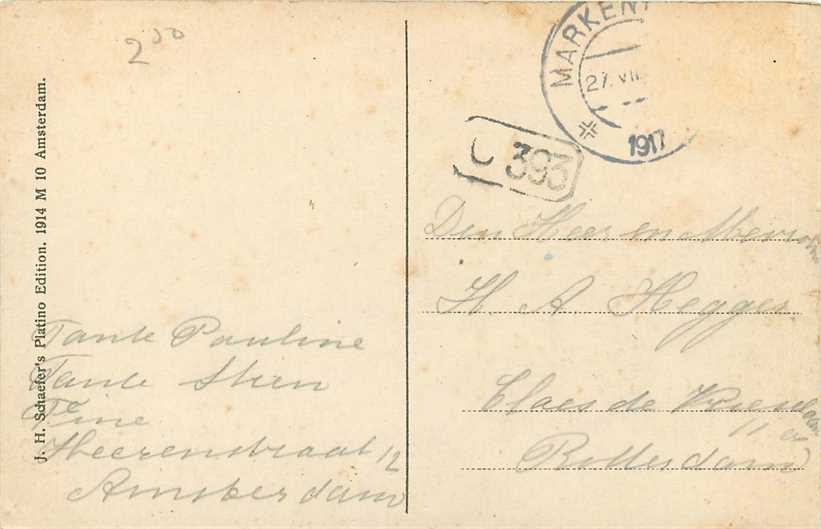 200
J. H. Schaefer's Platino Edition. 1914 M 10 Amsterdam.
Tante Pauline
Tante Stien
Tine
Heerenstraat 12
Amsterdam
MARKEN
27 VII
1917
C 393
Den Heer en Mevrouw
H. A. Hegger
Claes de
Rotterdam